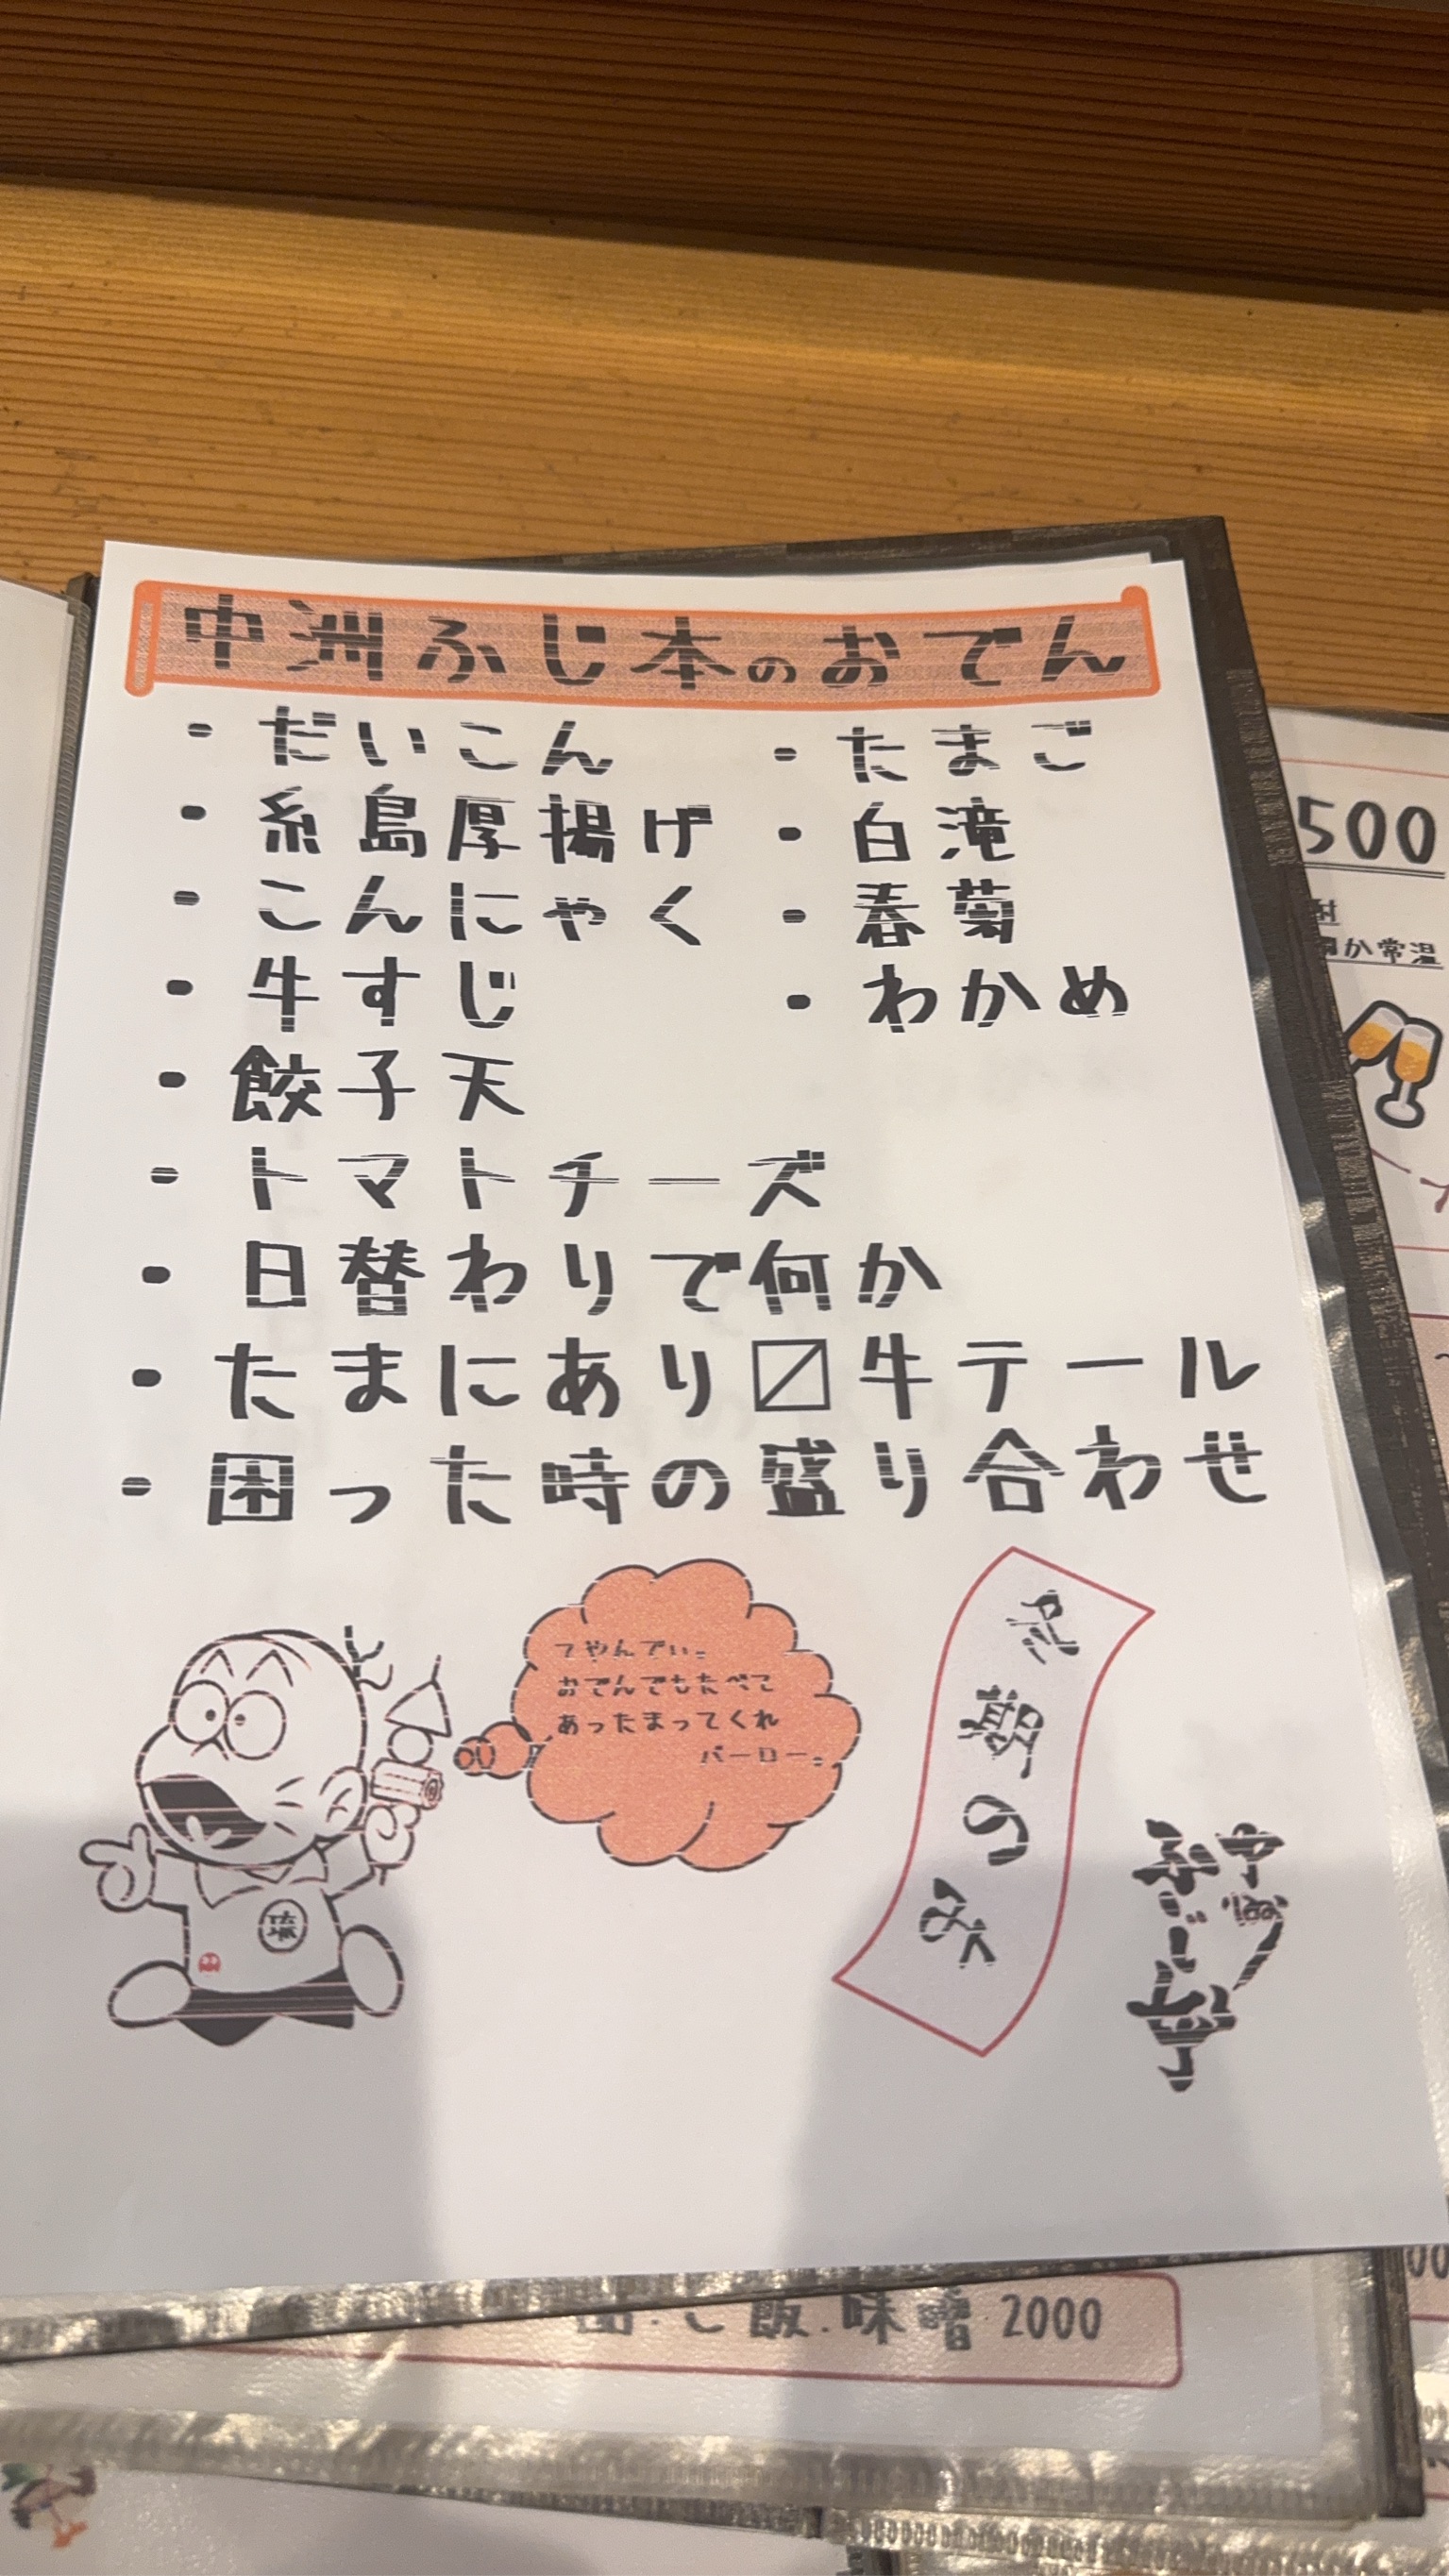 中洲ふじ本のおでん
・だいこん
・糸島厚揚げ
・こんにゃく
・牛すじ
・餃子天
・トマトチーズ
・日替わりで何か
・たまにあり〼牛テール
・困った時の盛り合わせ
・たまご
・白滝
・春菊
・わかめ
てやんでい。
おでんでもたべて
あったまってくれ
バーローー。
琉
ふじ本
500
か常温
ご飯.味噌 2000